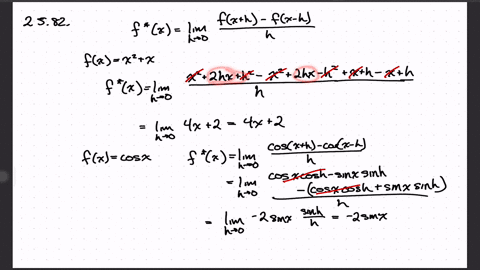 2.5.82.
f*(x) = lim h→0 f(x+h) - f(x-h) / h
f(x) = x² + x
f*(x) = lim h→0 x² + 2hx + h² - x² + 2hx - h² + x + h - x + h / h
= lim h→0 4x + 2 = 4x + 2
f(x) = cos x
f*(x) = lim h→0 cos(x+h) - cos(x-h) / h
= lim h→0 cos x cos h - sin x sin h - (cos x cos h + sin x sin h) / h
= lim h→0 -2 sin x sin h / h = -2 sin x